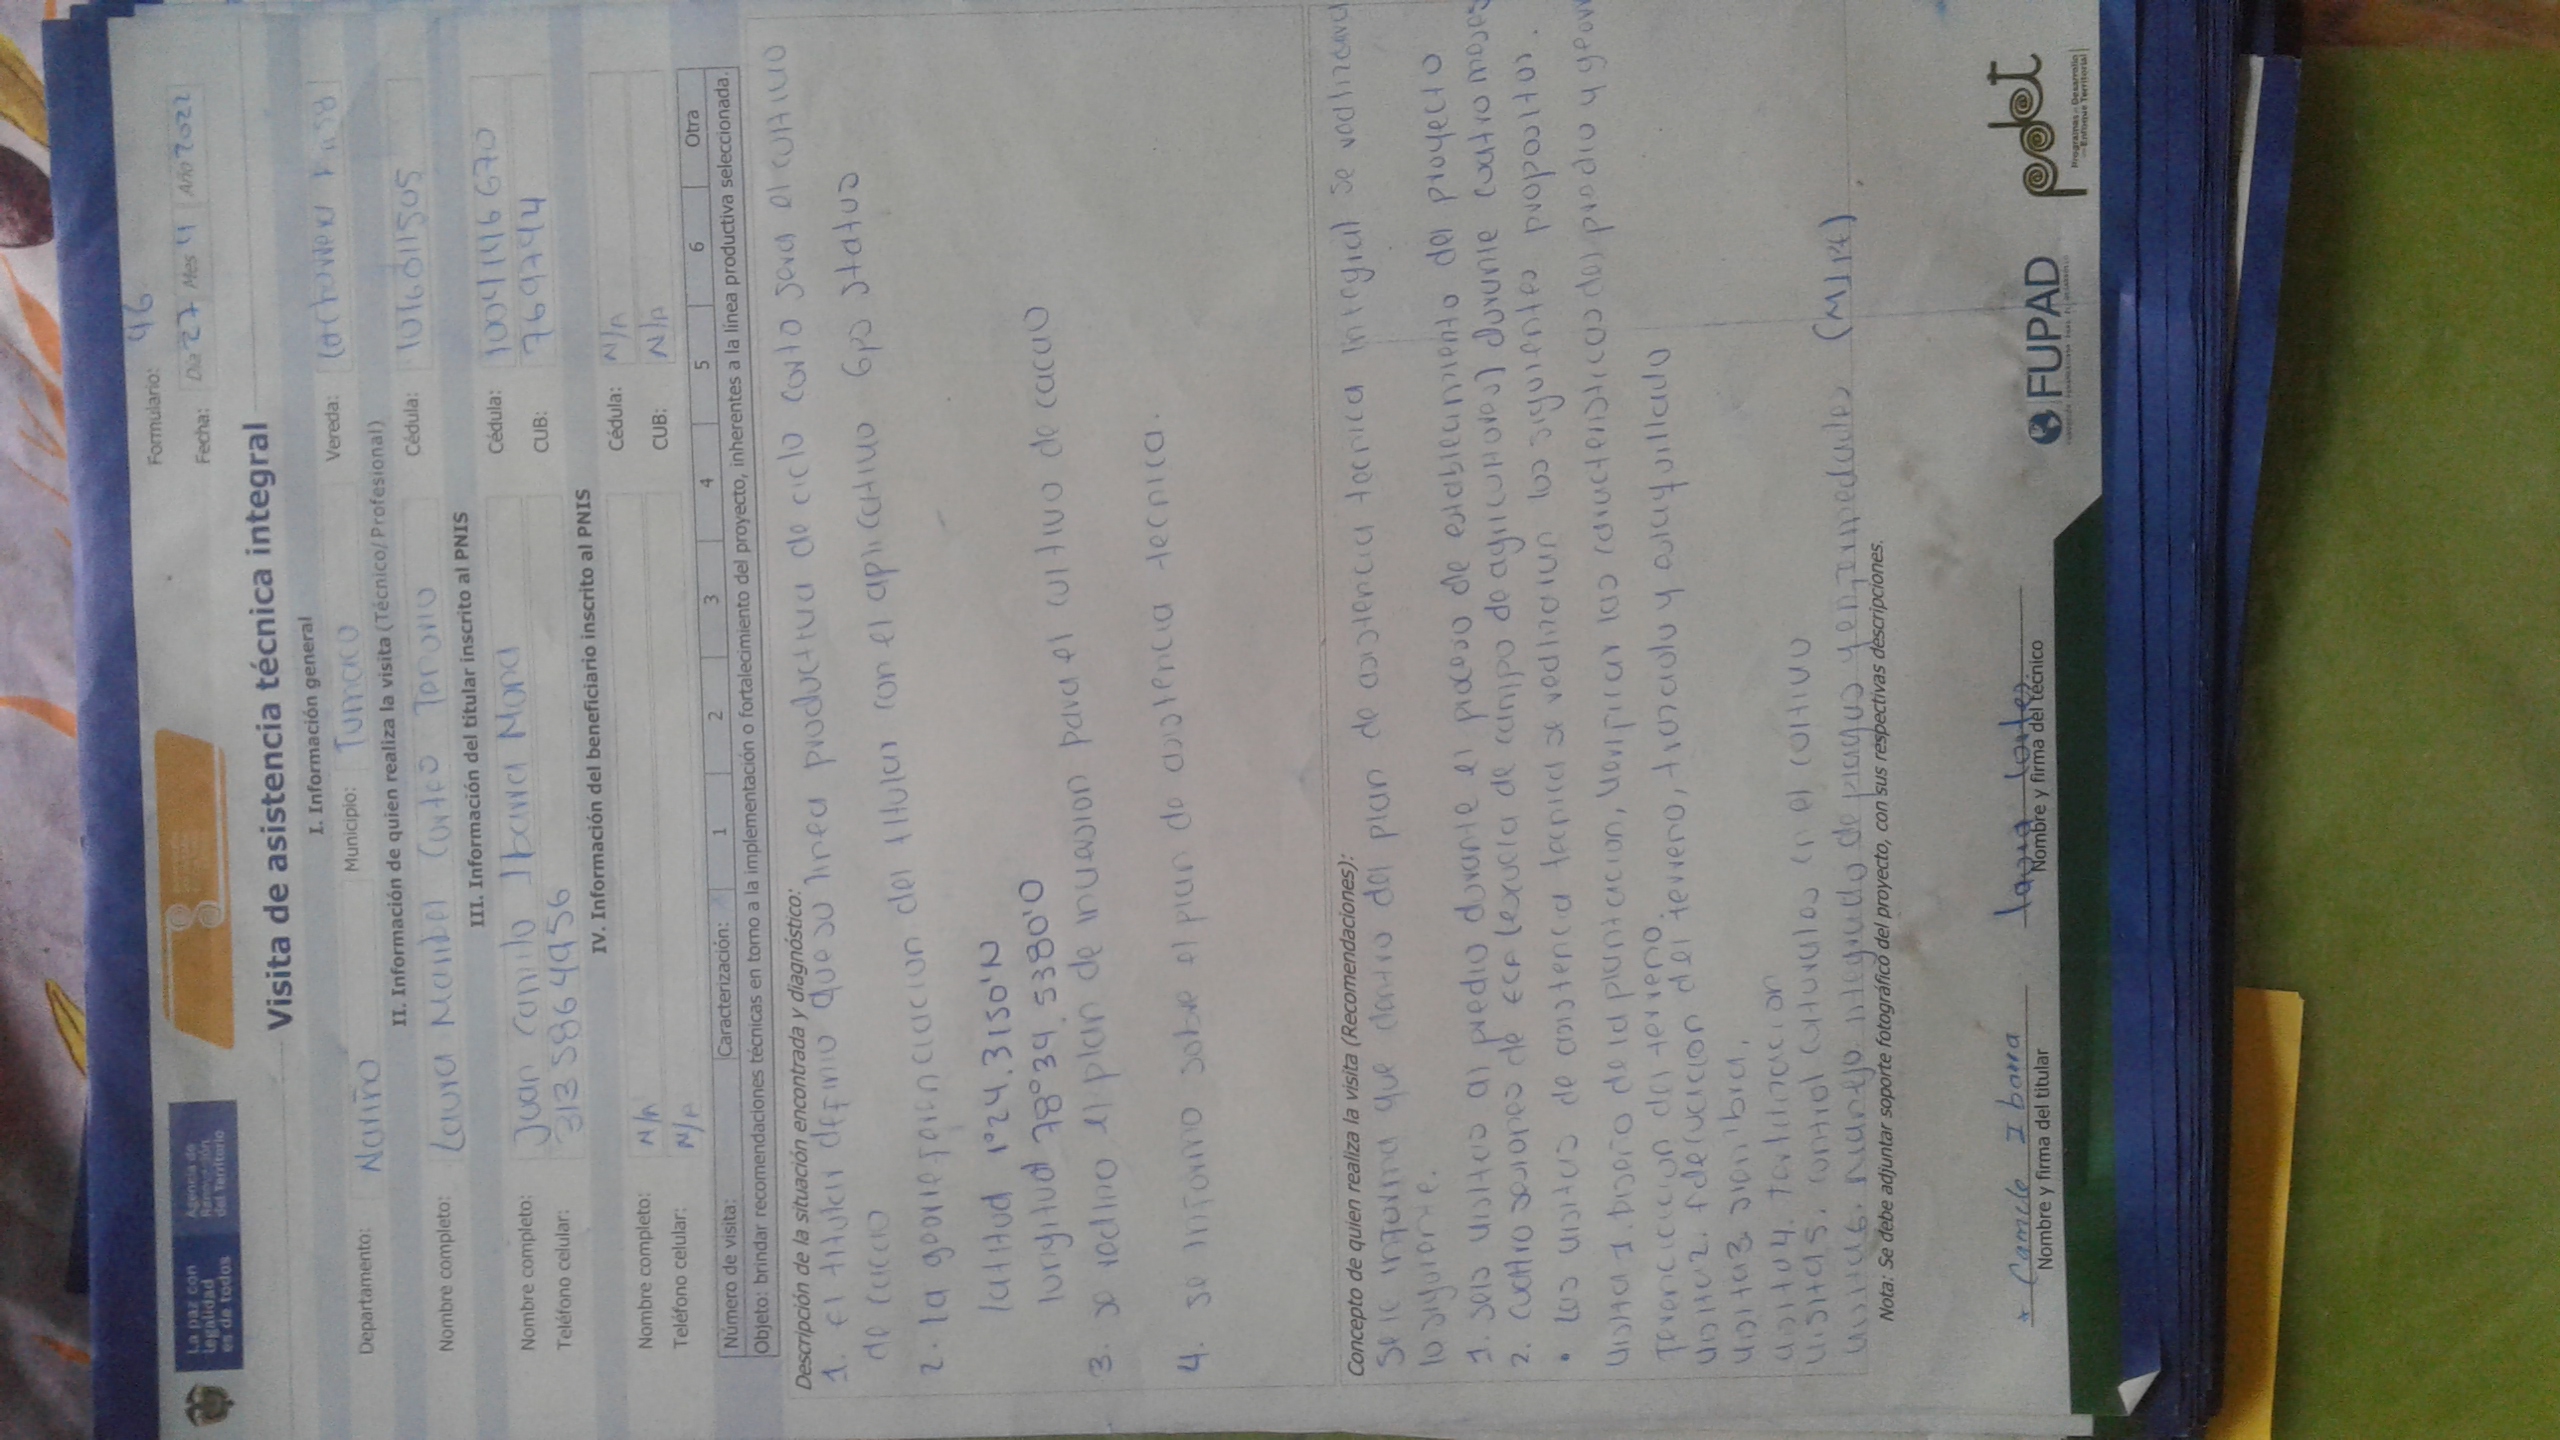 La paz con
legalidad
es de todos
Agencia de
Renovación
del Territorio
Formulario: 46
Fecha: Día 27 Mes 4 Año 2022
Visita de asistencia técnica integral
I. Información general
Departamento: Nariño Municipio: Tumaco Vereda:
II. Información de quien realiza la visita (Técnico/Profesional)
Nombre completo: Laura Maribel Cortes Tenorio Cédula: 1016011505
III. Información del titular inscrito al PNIS
Nombre completo: Juan Camilo Ibarra Mora Cédula: 1004146670
Teléfono celular: 3135864956 CUB: 769744
IV. Información del beneficiario inscrito al PNIS
Nombre completo: N/A Cédula: N/A
Teléfono celular: N/A CUB: N/A
Número de visita: Caracterización: 1 2 3 4 5 6 Otra
Objeto: brindar recomendaciones técnicas en torno a la implementación o fortalecimiento del proyecto, inherentes a la línea productiva seleccionada.
Descripción de la situación encontrada y diagnóstico:
1. El titular definio que su linea productiva de ciclo corto sera el cultivo
de cacao
2. la georeferenciacion del titular con el aplicativo Gps status
latitud 1°24.3150'N
longitud 78°34.5380'O
3. se realizo el plan de inversion para el cultivo de cacao
4. se informo sobre el plan de asistencia tecnica.
Concepto de quien realiza la visita (Recomendaciones):
Se le informa que dentro del plan de asistencia tecnica integral se realizara
lo siguiente.
1. seis visitas al predio durante el proceso de establecimiento del proyecto
2. cuatro sesiones de ECA (escuela de campo de agricultores) durante cuatro meses
• las visitas de asistencia tecnica se realizaran los siguientes propositos.
visita 1. Diseño de la plantacion, verificar las caracteristicas del predio y geore
ferenciacion del terreno.
visita 2. Adecuacion del terreno, trazado y ahoyado
visita 3. siembra,
visita 4. fertilizacion
visita 5. control culturales en el cultivo
visita 6. manejo integrado de plagas y enfermedades (MIPE)
Nota: Se debe adjuntar soporte fotográfico del proyecto, con sus respectivas descripciones.
* Camilo Ibarra
Nombre y firma del titular
Laura Cortes
Nombre y firma del técnico
FUPAD
pdet
Programas de Desarrollo
con Enfoque Territorial